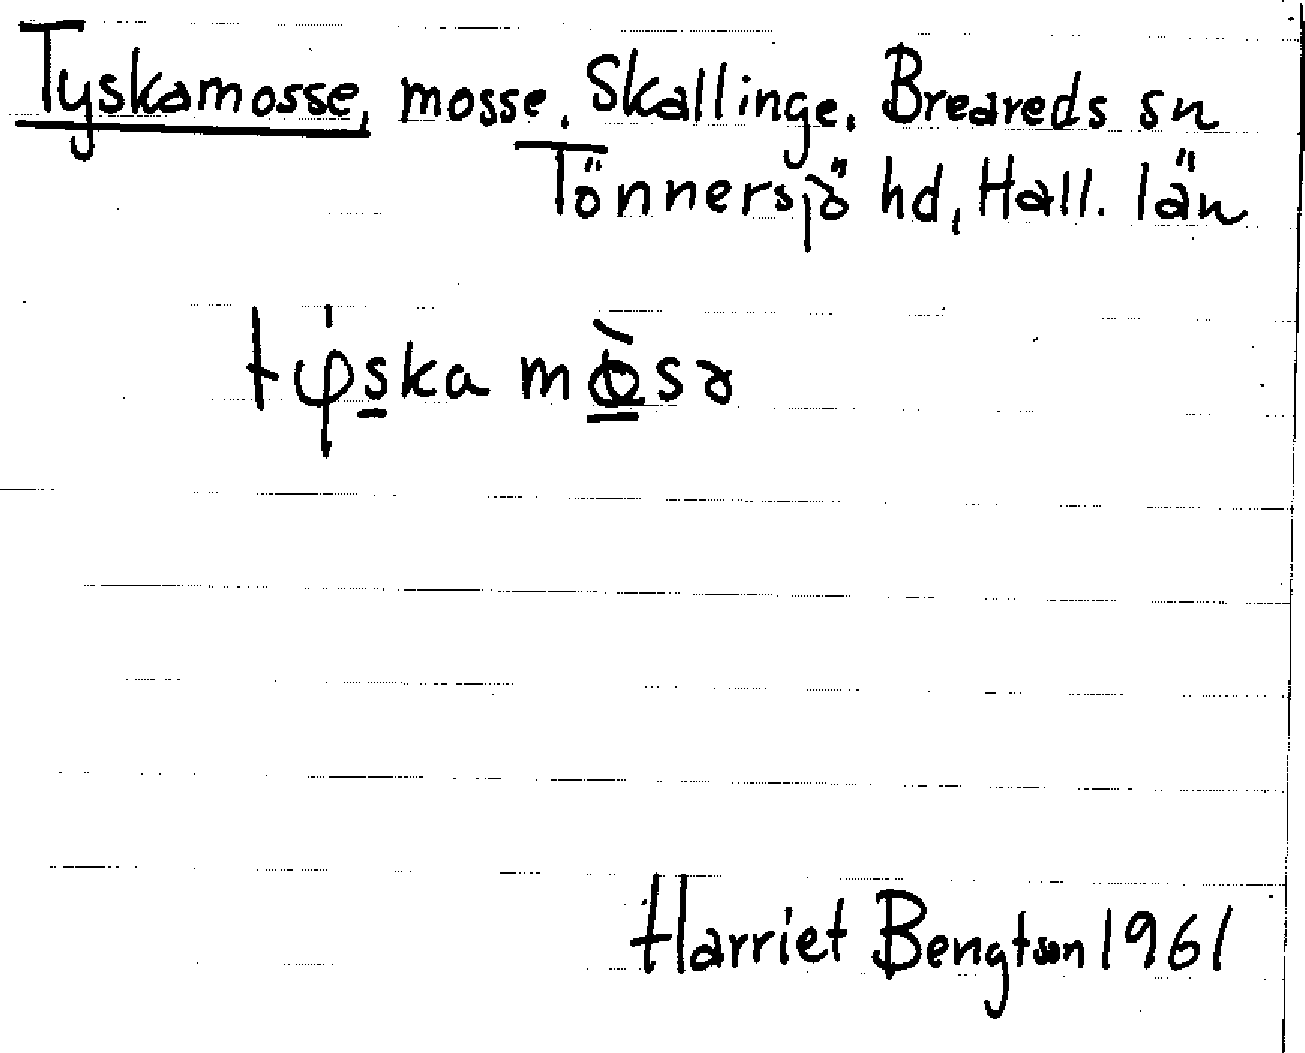 Tyskamosse, mosse. Skallinge. Breareds sn
Tönnersjö hd, Hall. län
Harriet Bengtson 1961